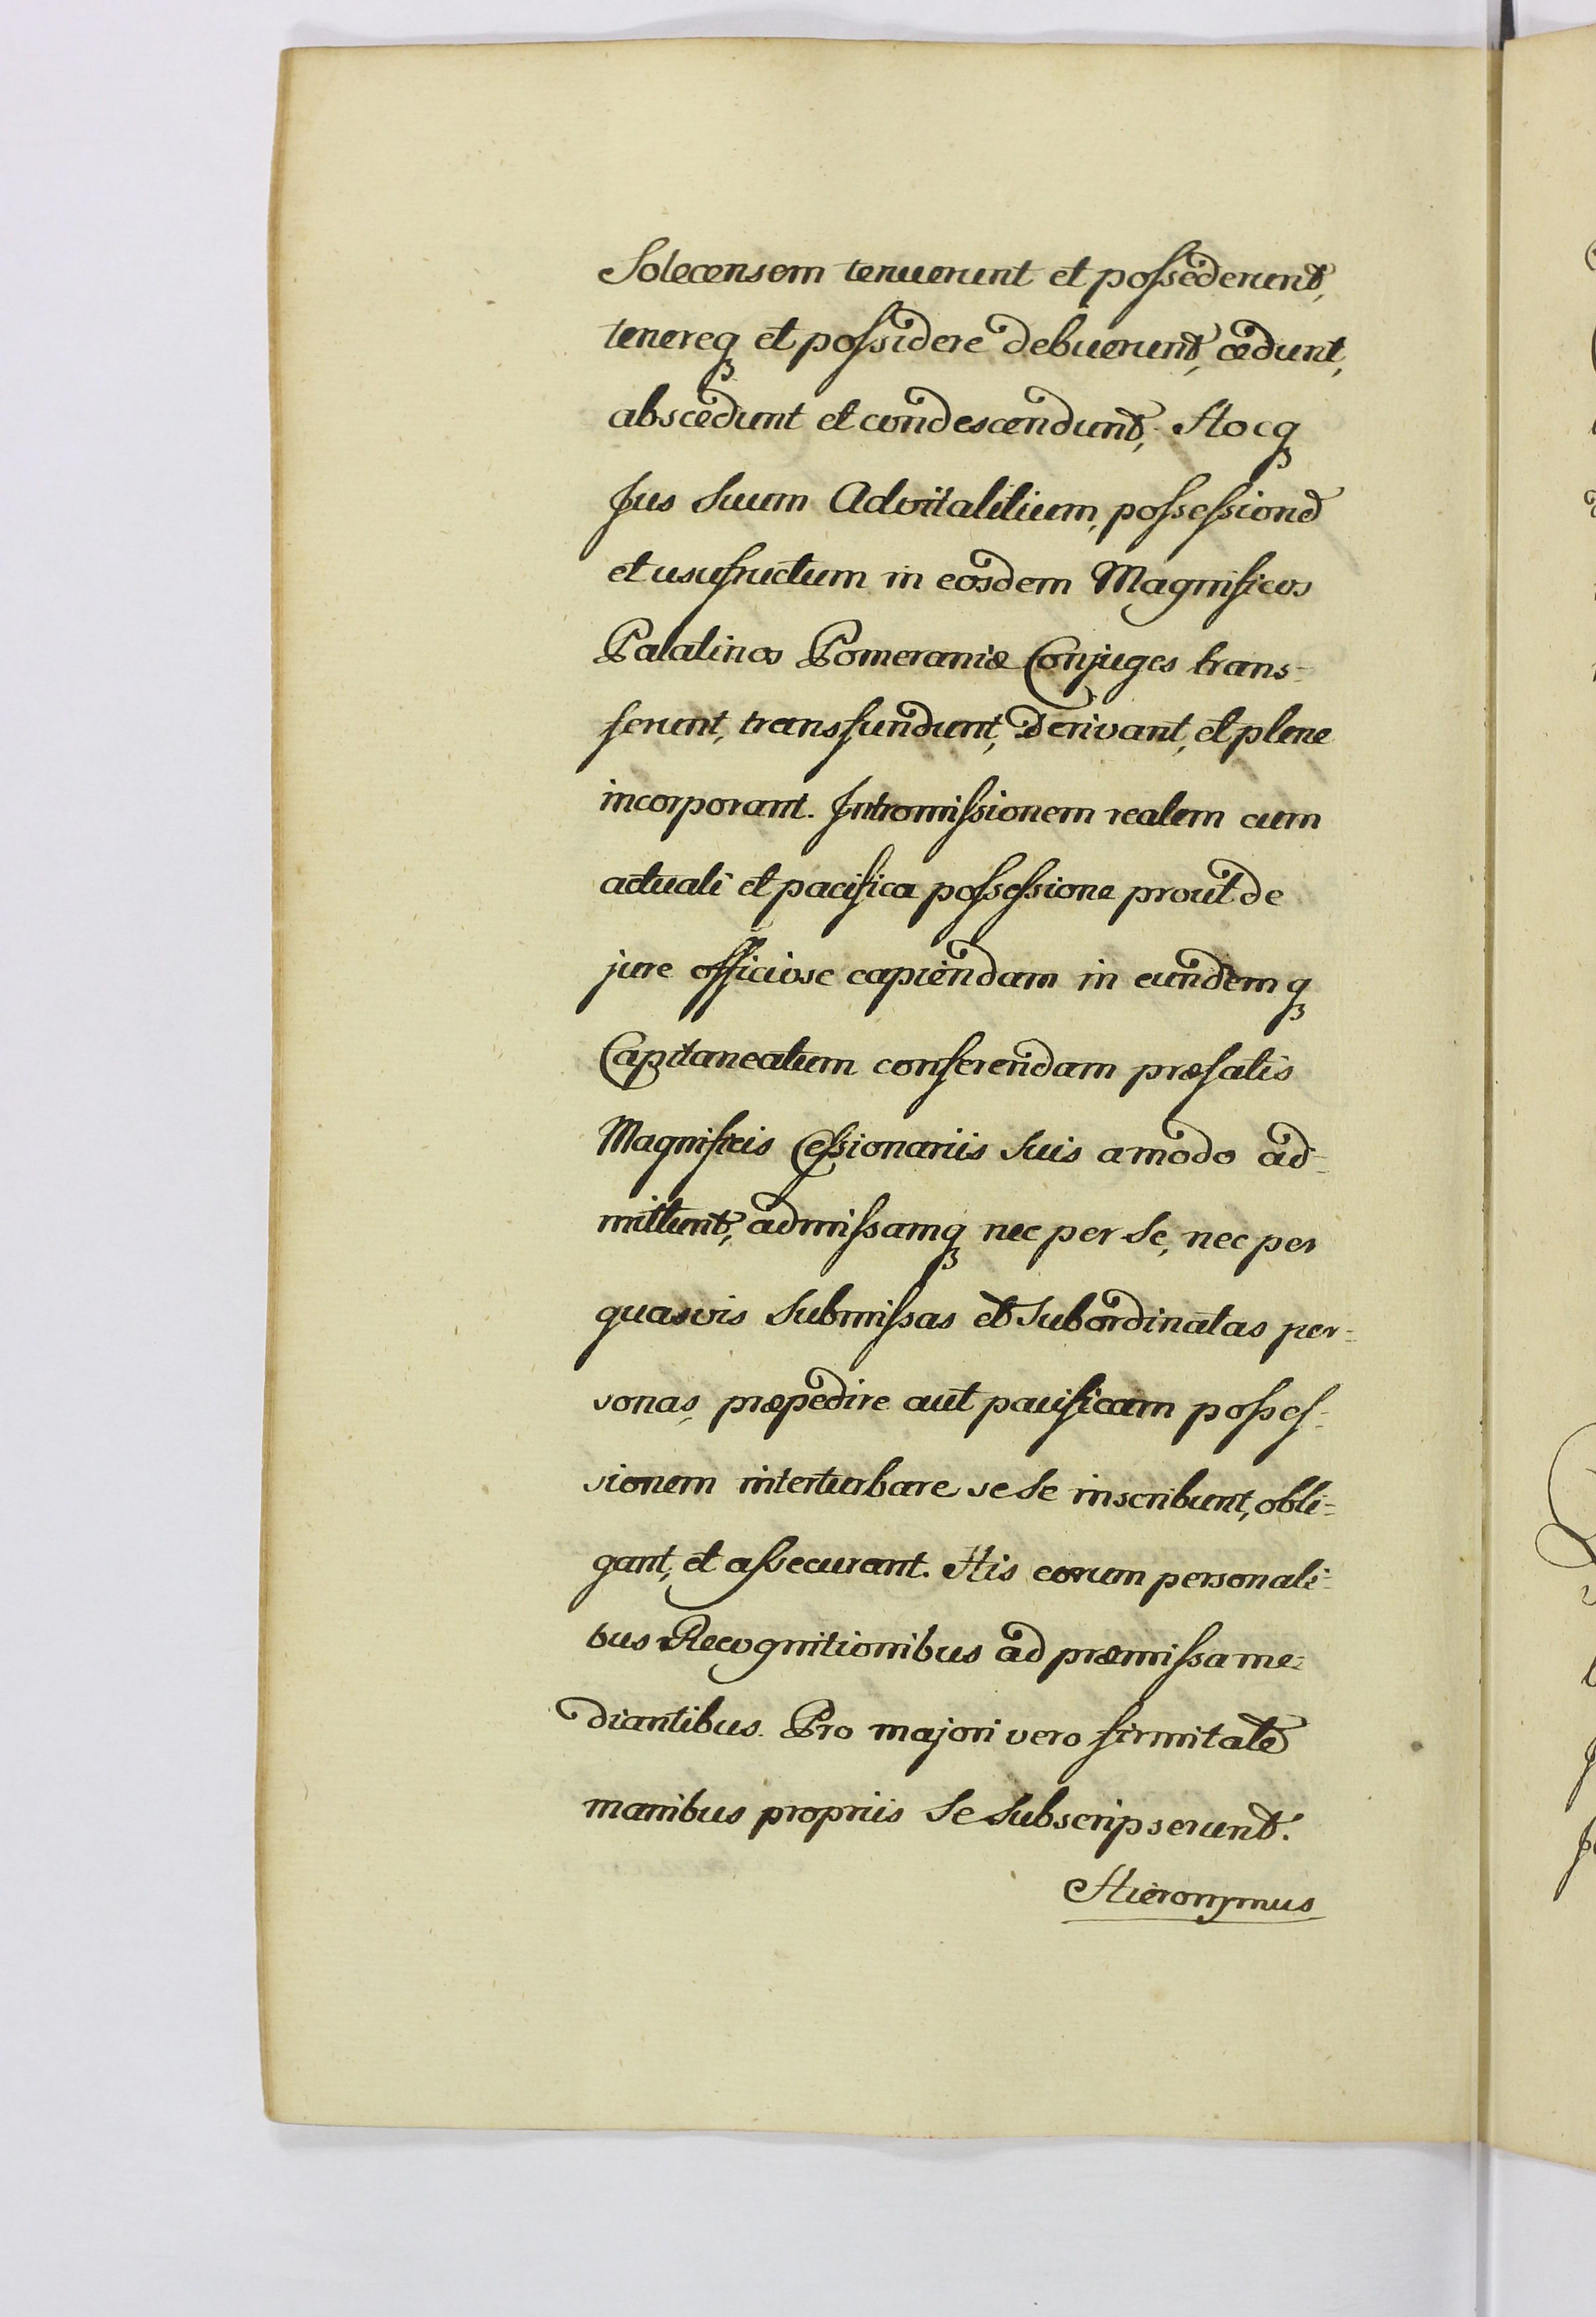 Solecensem tenuerunt et poſsederunt,
tenereq́ꝫ et poſsidere debuerunt, cedunt,
abscedunt et condescendunt; Hocqꝫ
Jus Suum Advitalitium, poſseſsionē
et usufructum in eosdem Magnificos
Palatinos Pomeraniæ Conjuges trans=
ferunt, transfundunt, derivant, et plene
incorporant. Intromiſsionem realem cum
actuali et pacifica poſseſsione prout de
jure officiose capiendam in eundemqꝫ
Capitaneatum conferendam præfatis
Magnificis Ceſsionariis Suis amodo ad=
mittunt, admiſsamqꝫ nec per Se, nec per
quasvis Submiſsas et Subordinatas per=
sonas, præpedire aut pacificam poſseſ=
sionem interturbare se Se inscribunt, obli=
gant, et aſsecurant. His eorum personali=
bus Recognitionibus ad præmiſsa me=
diantibus. Pro majori vero firmitate
manibus propriis Se Subscripserunt.
Hieronymus